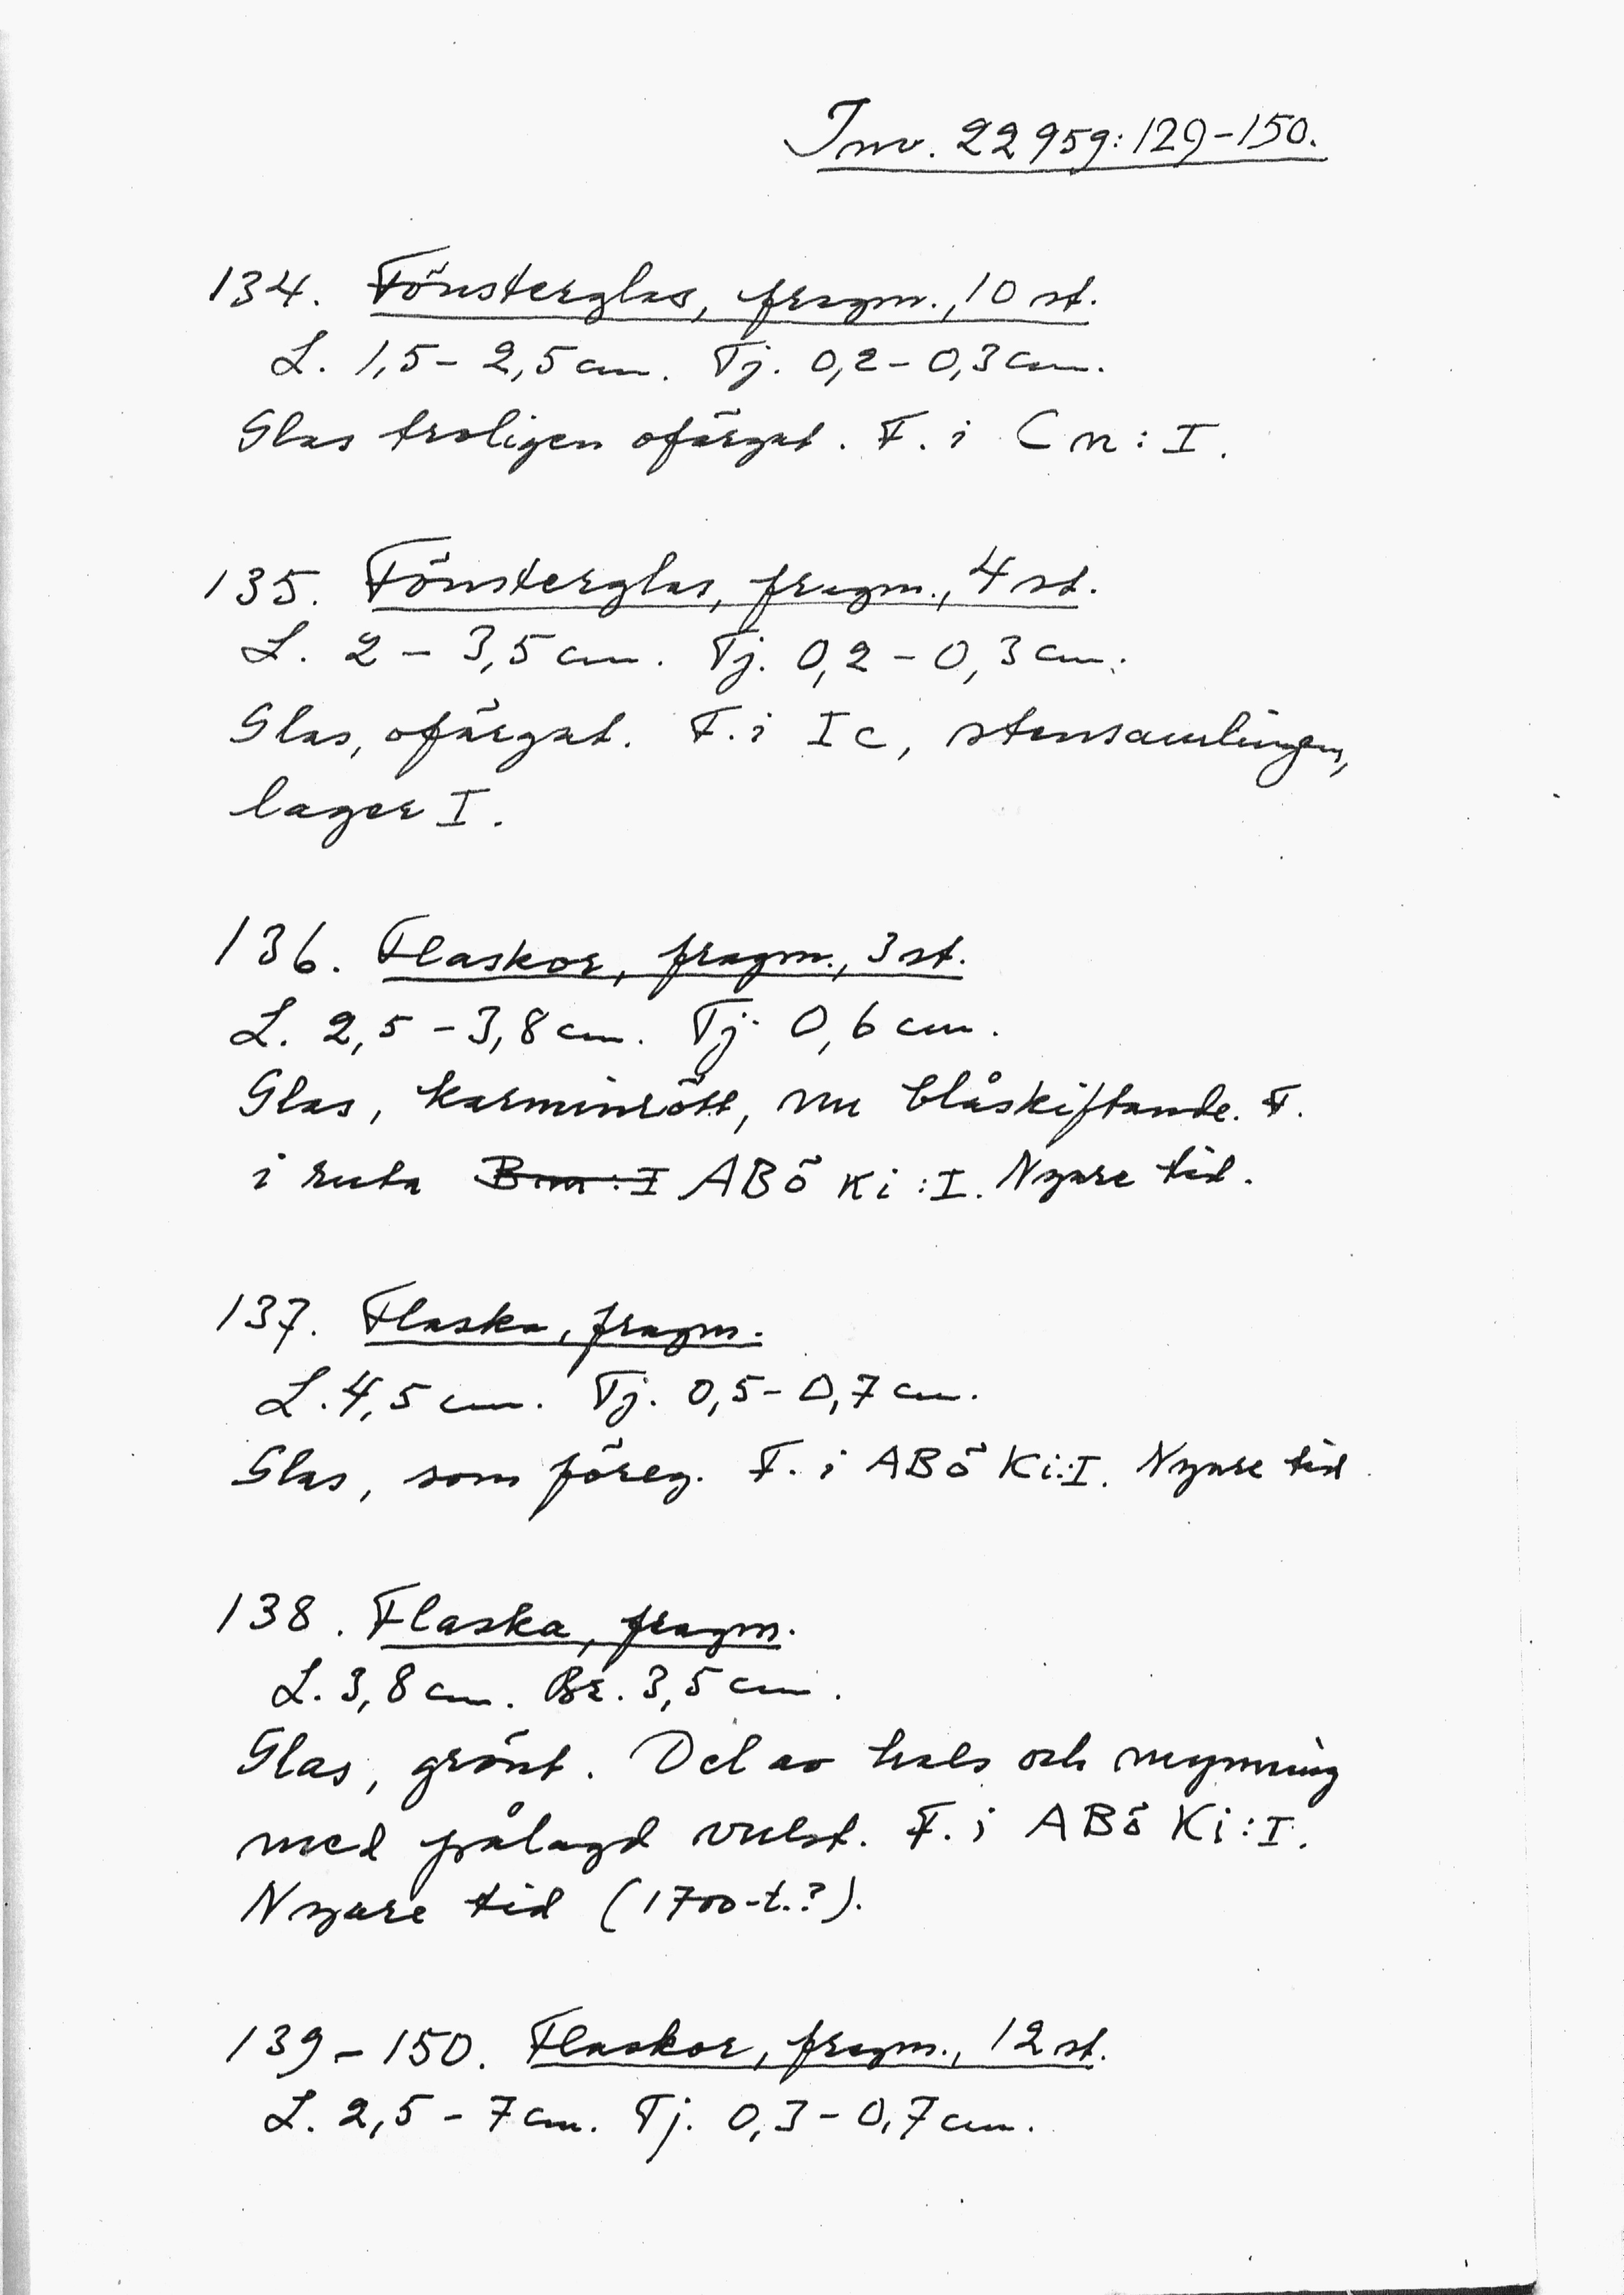 Inv. 22959:129-150.
134. Fönsterglas, fragm., 10 st.
L. 1,5 - 2,5 cm. Tj. 0,2 - 0,3 cm.
Glas troligen ofärgat. F. i Cn: I.
135. Fönsterglas, fragm., 4 st.
L. 2 - 3,5 cm. Tj. 0,2 - 0,3 cm.
Glas, ofärgat. F. i Ic, stensamlingen,
lager I.
136. Flaskor, fragm., 3 st.
L. 2,5 - 3,8 cm. Tj. 0,6 cm.
Glas, karminrött, nu blåskiftande. F.
i ruta Bm: I ABö Ki: I. Nyare tid.
137. Flaska, fragm.
L. 4,5 cm. Tj. 0,5 - 0,7 cm.
Glas, som föreg. F. i ABö Ki: I. Nyare tid.
138. Flaska, fragm.
L. 3,8 cm. Br. 3,5 cm.
Glas, grönt. Del av hals och mynning
med pålagd vulst. F. i ABö Ki: I.
Nyare tid (1700-t.?).
139 - 150. Flaskor, fragm., 12 st.
L. 2,5 - 7 cm. Tj. 0,3 - 0,7 cm.